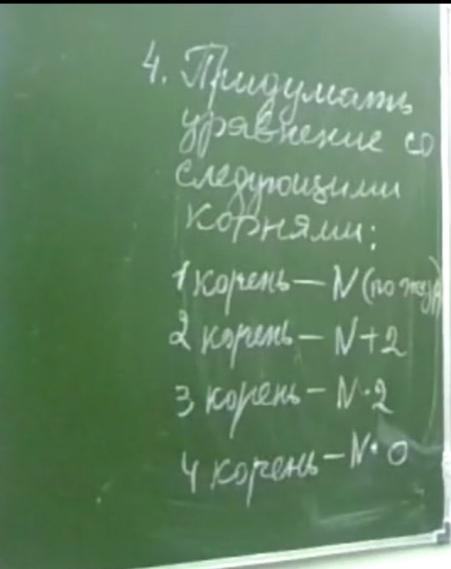 4. Придумать
уравнение со
следующими
корнями:
1 корень — N (по жур)
2 корень — N+2
3 корень — N·2
4 корень — N·0